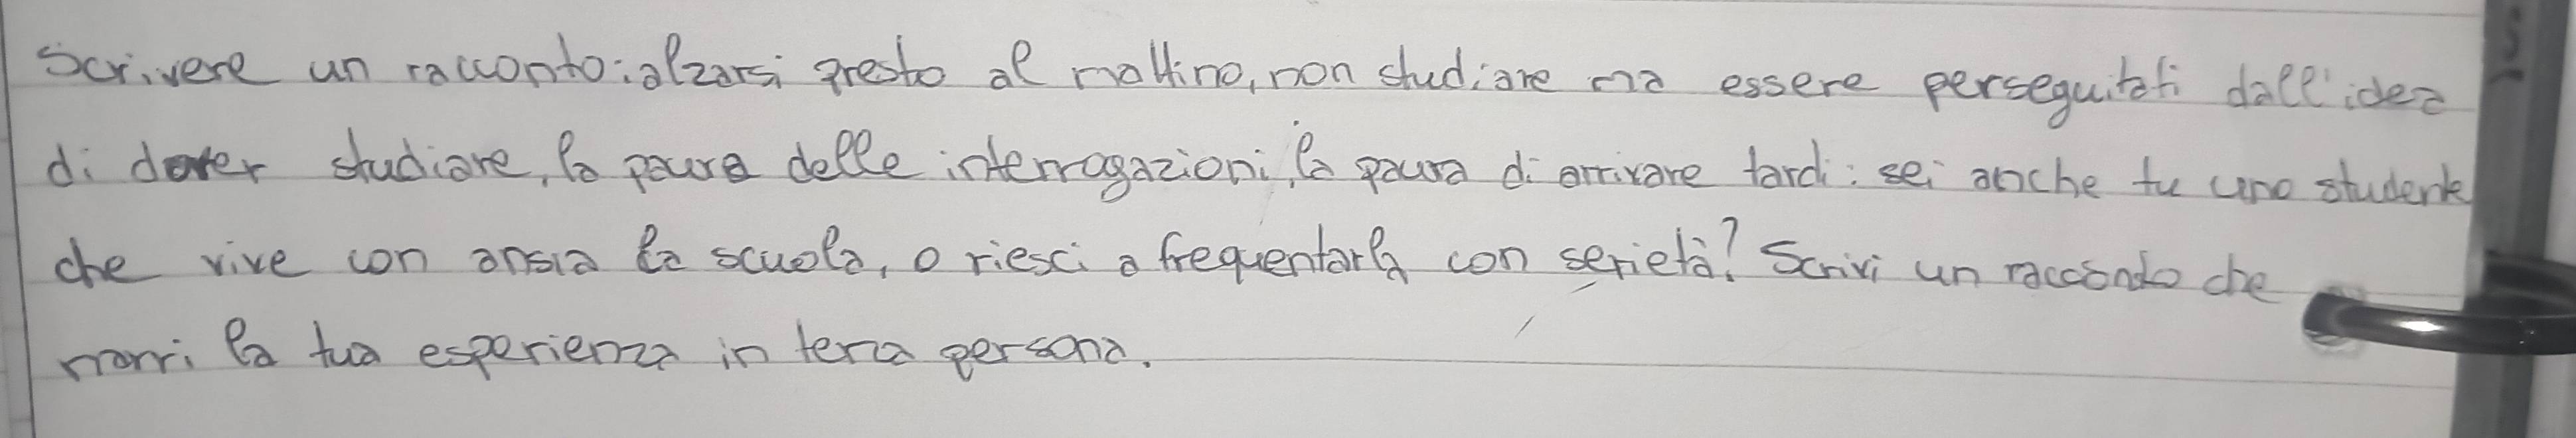 Scrivere un racconto: alzarsi presto al mattino, non studiare ma essere perseguitati dall'idea
di dover studiare, la paura delle interrogazioni, la paura di arrivare tardi: sei anche tu uno studente
che vive con ansia la scuola, o riesci a frequentarla con serietà? Scrivi un racconto che
narri la tua esperienza in terza persona.